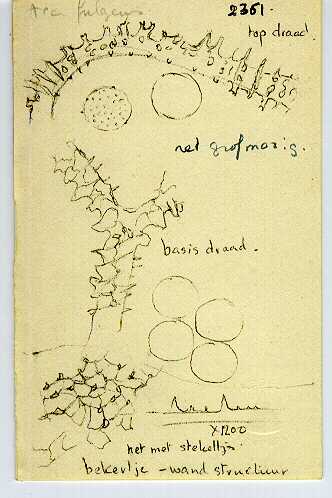 Arc. fulgens
2361.
top draad.
net grofmazig.
basis draad.
X1200
net met stekeltjs
bekertje - wand structuur